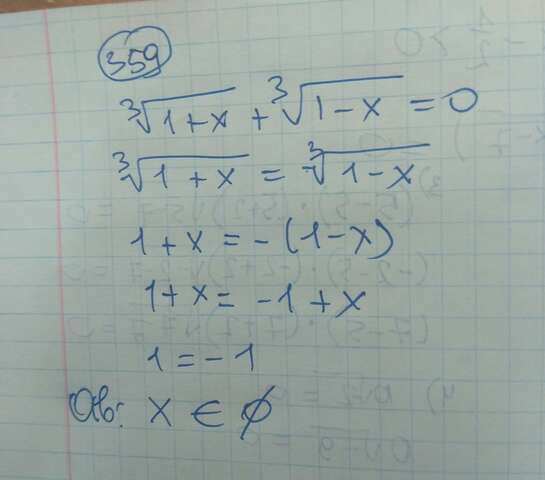 359
∛1+x + ∛1-x = 0
∛1+x = -∛1-x
1+x = -(1-x)
1+x = -1+x
1 = -1
Отв: x ∈ ∅